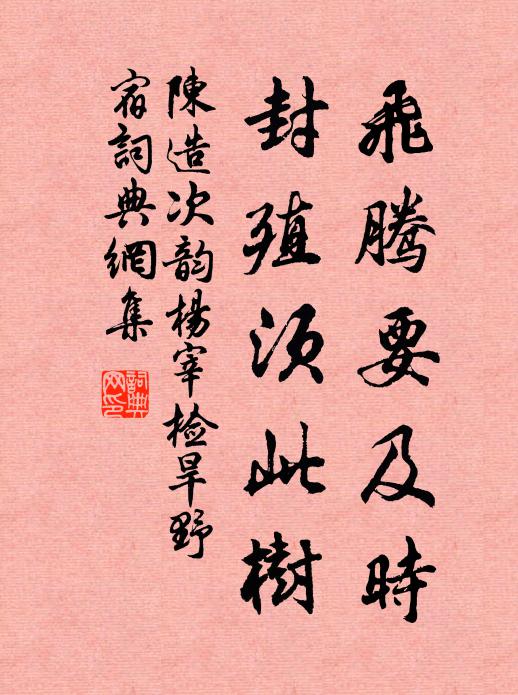 飛騰要及時
封殖須此樹
陳造次韵楊宰檢旱野
宿詞典網集
詞典
网印